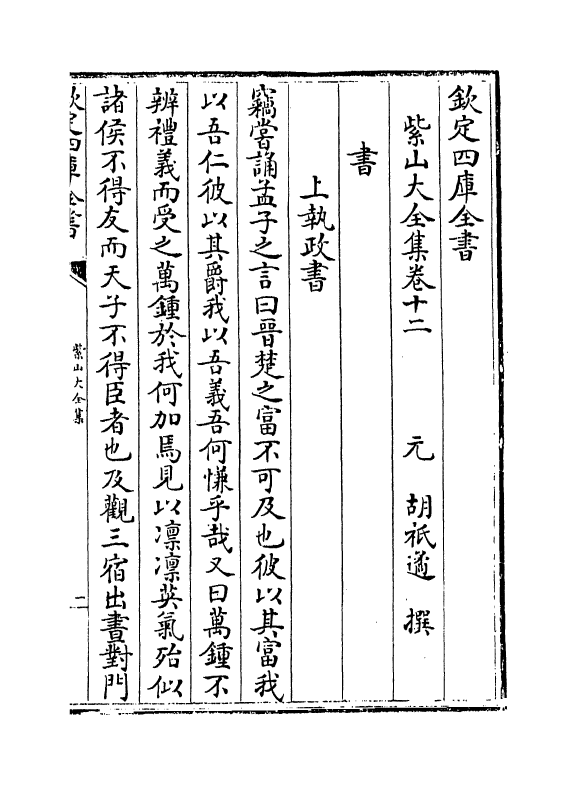 欽定四庫全書
紫山大全集卷十二
元 胡祗遹 撰
書
上執政書
竊嘗誦孟子之言曰晉楚之富不可及也彼以其富我
以吾仁彼以其爵我以吾義吾何慊乎哉又曰萬鍾不
辨禮義而受之萬鍾於我何加焉見以凛凛英氣殆似
諸侯不得友而天子不得臣者也及觀三宿出晝對門
欽定四庫全書
紫山大全集